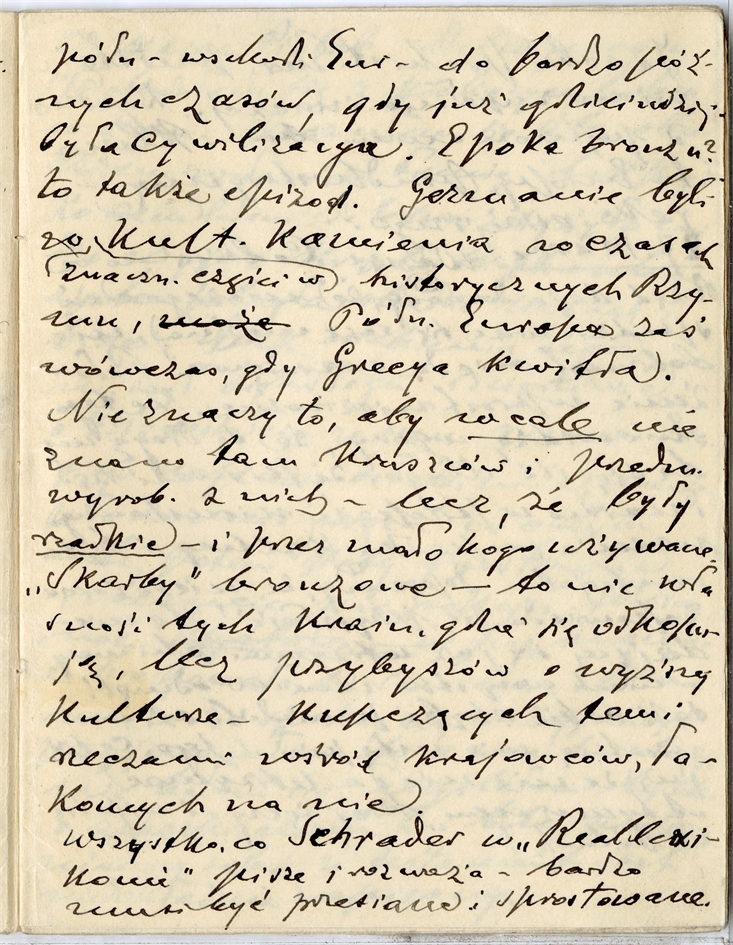 półn - wschodn. Eur - do bardzo póź-
nych czasów, gdy już gdzieindziej
była Cywilizacya. Epoka bronzu?
to także epizod. Germanie byli
w Kult. Kamienia w czasach
(znaczn. części w) historycznych Rzy-
mu, może Półn. Europa zaś
wówczas, gdy Grecya kwitła).
Nie znaczy to, aby wcale nie
znano tam Kruszców i przedm.
wyrob. z nich - lecz, że były
rzadkie - i przez mało kogo używane.
„Skarby" bronzowe - to nie wła
sność tych Krain, gdzie się odkopu-
ją, lecz przybyszów o wyższej
Kulturze - Kupczących temi
rzeczami wśród krajowców, ła-
komych na nie).
Wszystko, co Schrader w „Reallexi-
konie" pisze i rozważa - bardzo
musi być przesiane i sprostowane.